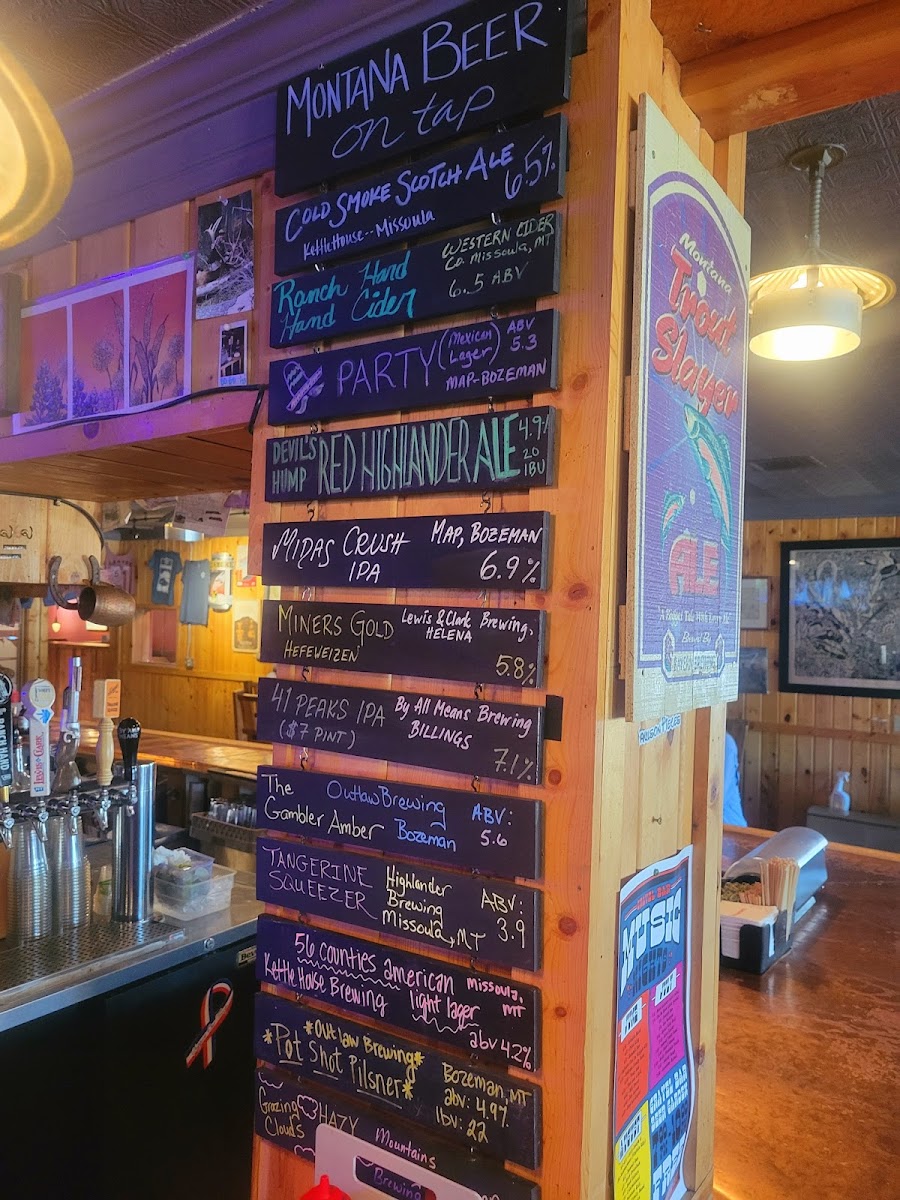 MONTANA BEER
on tap
COLD SMOKE SCOTCH ALE 6.5%
KettleHouse--Missoula
Ranch Hand
Hand Cider
WESTERN CIDER
Co. Missoula, MT
6.5 ABV
PARTY (Mexican Lager) ABV 5.3
MAP-BOZEMAN
DEVIL'S HUMP RED HIGHLANDER ALE 4.9%
20 IBU
MIDAS CRUSH IPA
MAP, BOZEMAN
6.9%
MINERS GOLD
HEFEWEIZEN
Lewis & Clark Brewing,
HELENA
5.8%
41 PEAKS IPA
($7 PINT)
By All Means Brewing
BILLINGS
7.1%
The Gambler Amber
Outlaw Brewing
Bozeman
ABV:
5.6
TANGERINE
SQUEEZER
Highlander
Brewing
Missoula, MT
ABV:
3.9
56 counties american light lager
Kettle House Brewing
missoula, MT
abv 4.2%
*Outlaw Brewing*
*Pot Shot Pilsner*
Bozeman, MT
abv: 4.97
IBU: 22
Grazing Clouds HAZY
Mountains
Brewing
Montana
Trout
Slayer
ALE
Brewed By
ALLISON PIECES
MUSIC
RANCH HAND